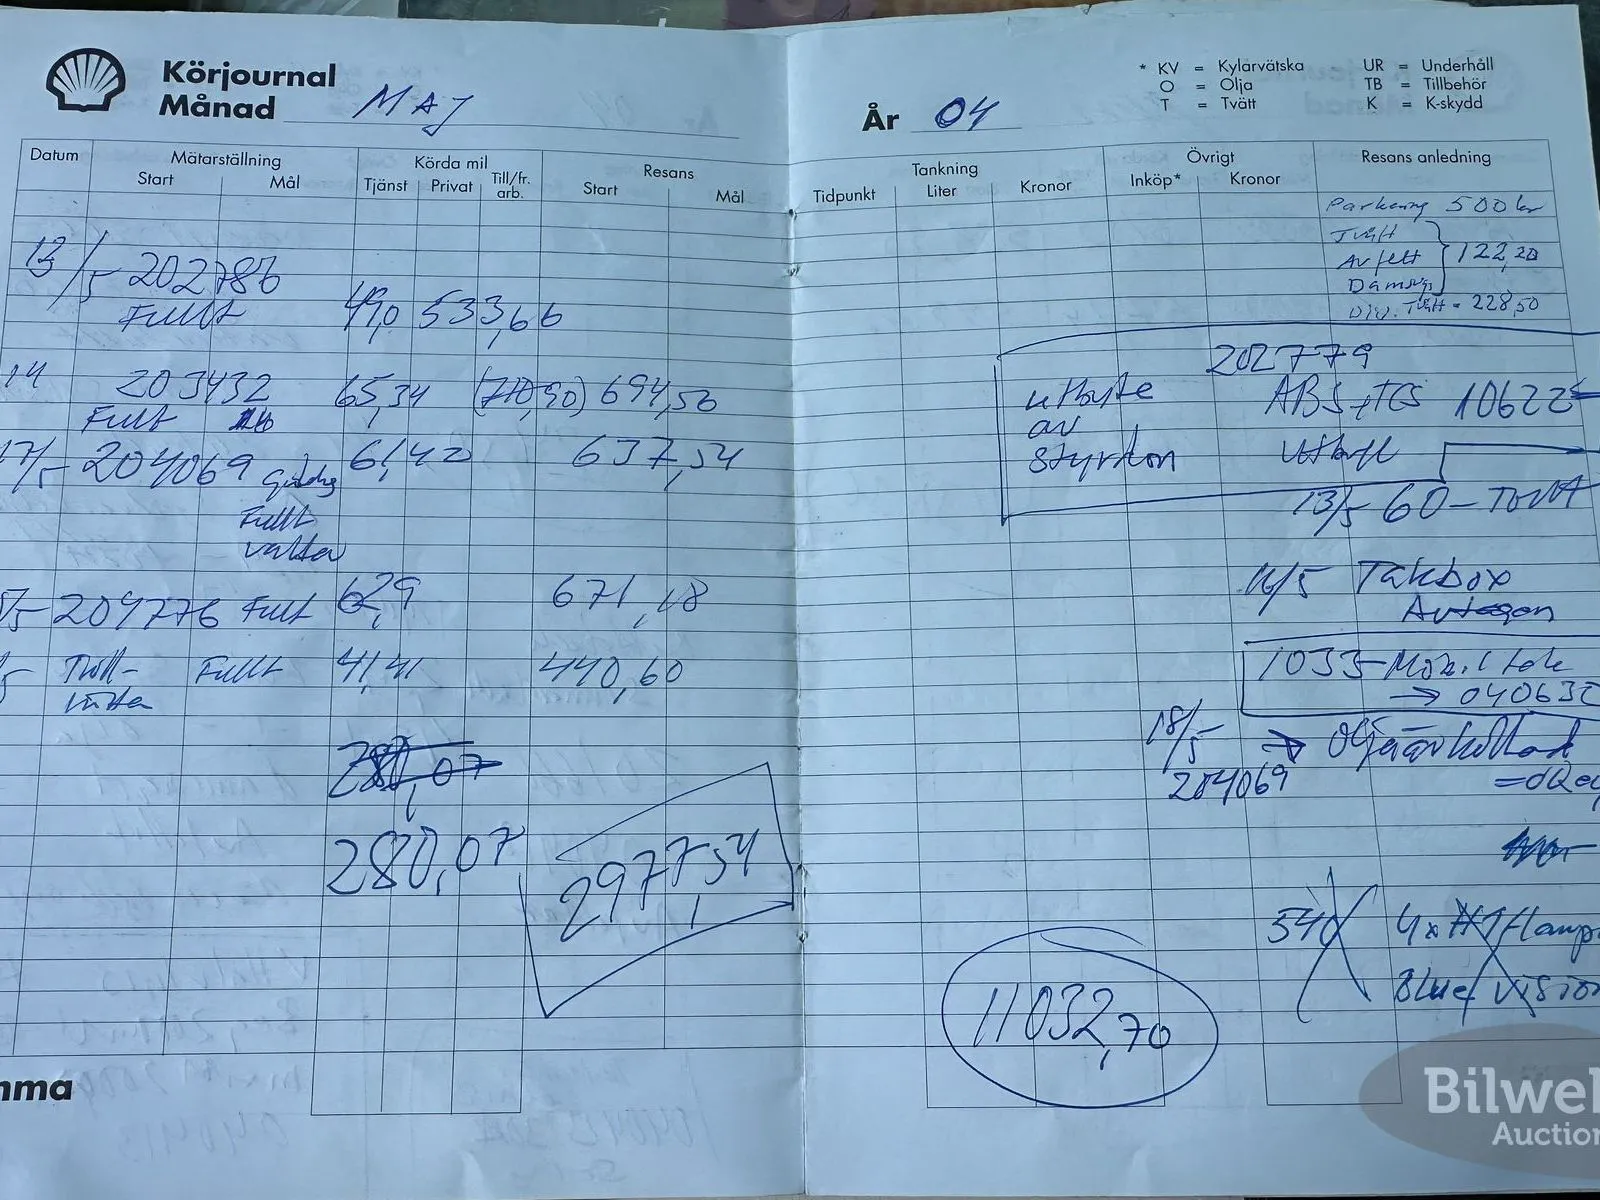 Körjournal
Månad MAJ
År 04
* KV = Kylärvätska UR = Underhåll
O = Olja TB = Tillbehör
T = Tvätt K = K-skydd
Datum Mätarställning Körda mil Resans
Start Mål Tjänst Privat Till/fr. arb. Start Mål
Tankning Övrigt Resans anledning
Tidpunkt Liter Kronor Inköp* Kronor
Parkering 500 kr
Tvätt
Avfett 122,20
= 228,50
13/5 202786
Fullt 49,0 533,66
14 203432 65,34 (710,90) 694,56
Fullt
17/5 204069 61,42 637,54
Fullt
/5 204776 Fullt 62,9 671,18
Fullt 41,41 440,60
280,07
280,07
2977,54
202779
utbyte ABS + TCS 10622
av
styrdon utbytt
13/5 60 - Tvätt
16/5 Takbox
1033-
→ 040630
18/5 →
204069
540 4x H7 lamp
Blue Vision
11032,70
mma
Bilwel
Auction